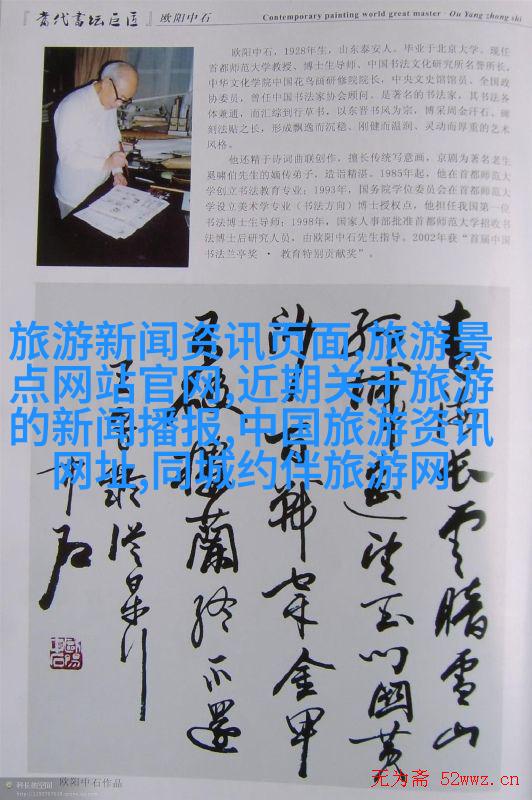 『当代书坛巨匠』欧阳中石
Contemporary painting world great master · Ou Yang zhong shi
欧阳中石，1928年生，山东泰安人。毕业于北京大学。现任
首都师范大学教授、博士生导师、中国书法文化研究所名誉所长，
中华文化学院中国花鸟画研修院院长，中央文史馆馆员、全国政
协委员，曾任中国书法家协会顾问。是著名的书法家，其书法各
体兼通，而汇综到行草书，以东晋书风为宗，博采周金汗石、碑
刻法贴之长，形成飘逸而沉稳、刚健而温润、灵动而厚重的艺术
风格。
他还精于诗词曲联创作，擅长传统写意画，京剧为著名老生
奚啸伯先生的嫡传弟子，造诣精湛。1985年起，他在首都师范大
学创立书法教育专业；1993年，国务院学位委员会在首都师范大
学设立美术学专业（书法方向）博士授权点，他担任我国第一位
书法博士生导师；1998年，国家人事部批准首都师范大学招收书
法博士后研究人员，由欧阳中石先生指导。2002年获“首届中国
书法兰亭奖 · 教育特别贡献奖”。
旅游新闻资讯页面,旅游景
点网站官网,近期关于旅游
的新闻播报,中国旅游资讯
网址,同城约伴旅游网
青海长云暗雪山
孤城遥望玉门关黄
沙百战穿金甲
不破楼兰终不还
王昌龄从军行
中石
欧阳中石作品
无为斋 52wwz.cn